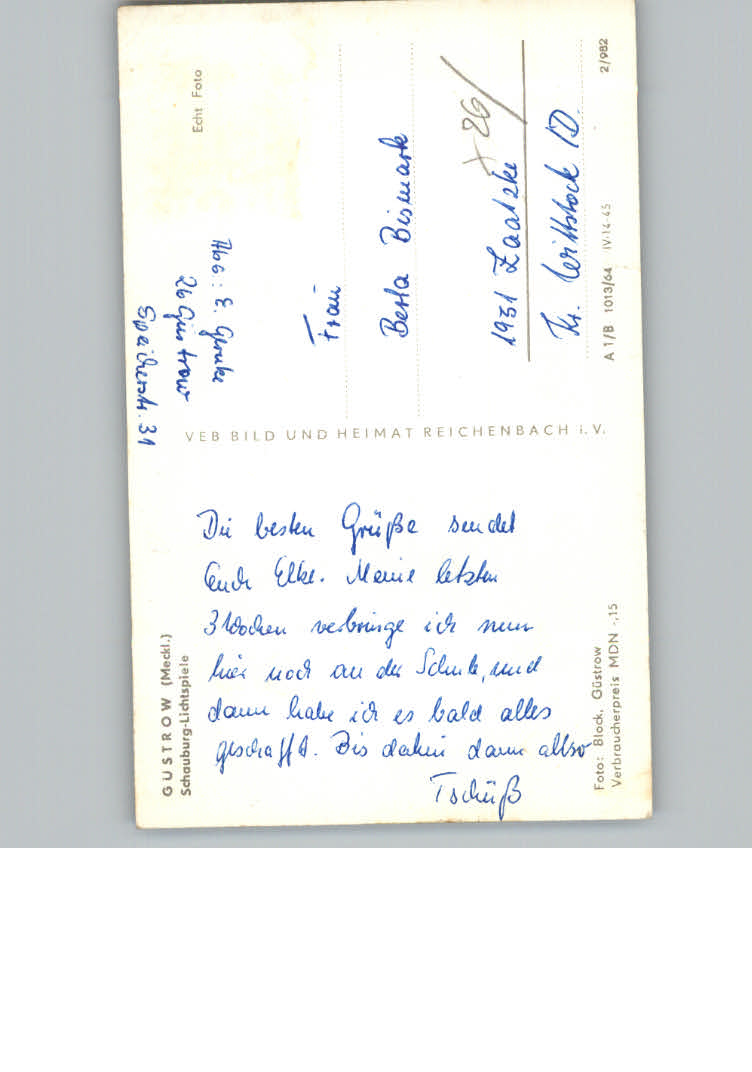 GÜSTROW (Meckl.)
Schauburg-Lichtspiele
Die besten Grüße sendet
Euch Elke. Meine letzten
3 Wochen verbringe ich nun
hier noch an der Schule, und
dann habe ich es bald alles
geschafft. Bis dahin dann allso
Tschüß
Foto: Block, Güstrow
Verbraucherpreis MDN -,15
VEB BILD UND HEIMAT REICHENBACH i. V.
Abs.: E.
26 Güstrow
Speicherstr. 31
Echt Foto
Frau
Berta Bismark
1931 Zaatzke
Kr. Wittstock /D.
+ 26/
A 1/B 1013/64 IV-14-45
2/982